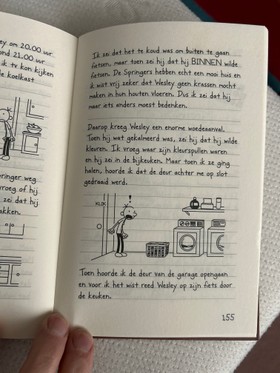 ley om 20.00 uur
ond 21.00 uur
ik tv kan kijken
de koelkast
inger weg.
vroeg of hij
zei dat hij
akken.
Ik zei dat het te koud was om buiten te gaan
fietsen, maar toen zei hij dat hij BINNEN wilde
fietsen. De Springers hebben echt een mooi huis en
ik wist vrij zeker dat Wesley geen krassen mocht
maken in hun houten vloeren. Dus ik zei dat hij
maar iets anders moest bedenken.
Daarop kreeg Wesley een enorme woedeaanval.
Toen hij wat gekalmeerd was, zei hij dat hij wilde
kleuren. Ik vroeg waar zijn kleurspullen waren
en hij zei in de bijkeuken. Maar toen ik ze ging
halen, hoorde ik dat de deur achter me op slot
gedraaid werd.
Toen hoorde ik de deur van de garage opengaan
en voor ik het wist reed Wesley op zijn fiets door
de keuken.
155